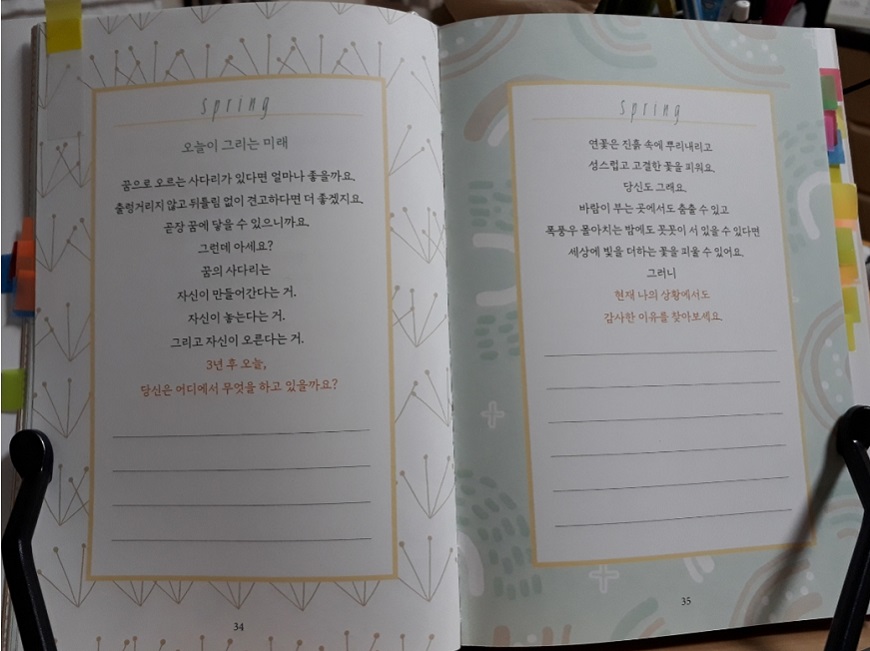 spring
오늘이 그리는 미래
꿈으로 오르는 사다리가 있다면 얼마나 좋을까요.
출렁거리지 않고 뒤틀림 없이 견고하다면 더 좋겠지요.
곧장 꿈에 닿을 수 있으니까요.
그런데 아세요?
꿈의 사다리는
자신이 만들어간다는 거.
자신이 놓는다는 거.
그리고 자신이 오른다는 거.
3년 후 오늘,
당신은 어디에서 무엇을 하고 있을까요?
34
spring
연꽃은 진흙 속에 뿌리내리고
성스럽고 고결한 꽃을 피워요.
당신도 그래요.
바람이 부는 곳에서도 춤출 수 있고
폭풍우 몰아치는 밤에도 꼿꼿이 서 있을 수 있다면
세상에 빛을 더하는 꽃을 피울 수 있어요.
그러니
현재 나의 상황에서도
감사한 이유를 찾아보세요.
35